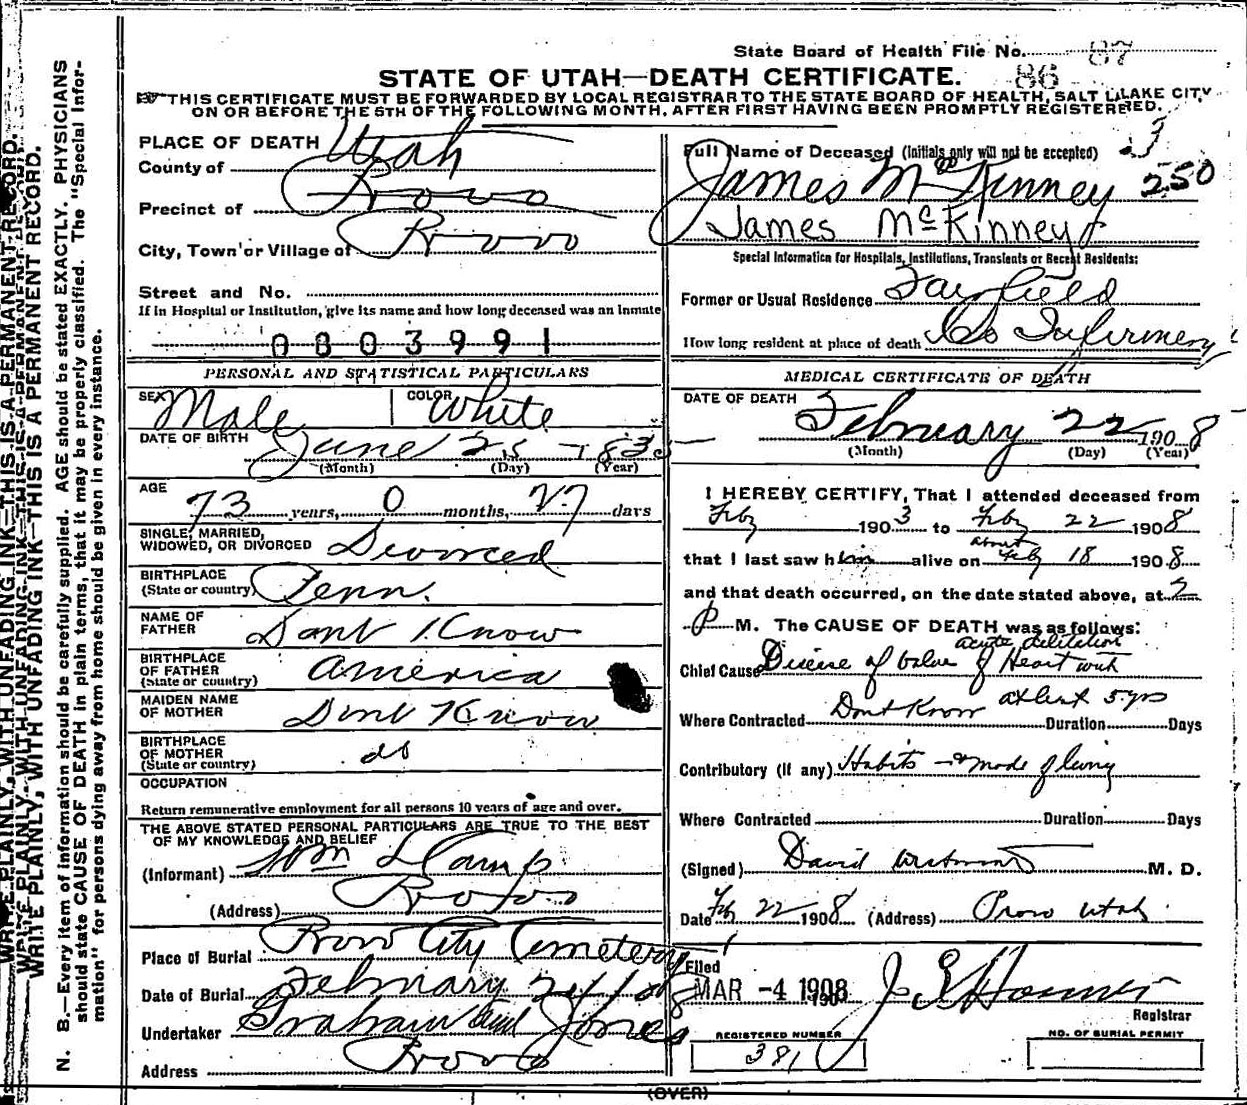 State Board of Health File No. 87
86
STATE OF UTAH—DEATH CERTIFICATE.
THIS CERTIFICATE MUST BE FORWARDED BY LOCAL REGISTRAR TO THE STATE BOARD OF HEALTH, SALT LAKE CITY
ON OR BEFORE THE 5TH OF THE FOLLOWING MONTH, AFTER FIRST HAVING BEEN PROMPTLY REGISTERED.
PLACE OF DEATH
County of Utah
Precinct of Provo
City, Town or Village of Provo
Street and No.
If in Hospital or Institution, give its name and how long deceased was an inmate
0803991
PERSONAL AND STATISTICAL PARTICULARS
SEX Male COLOR White
DATE OF BIRTH June 25 183
(Month) (Day) (Year)
AGE 73 years, 0 months, 27 days
SINGLE, MARRIED,
WIDOWED, OR DIVORCED Divorced
BIRTHPLACE
(State or country) Penn.
NAME OF
FATHER Dont Know
BIRTHPLACE
OF FATHER
(State or country) America
MAIDEN NAME
OF MOTHER Dont Know
BIRTHPLACE
OF MOTHER
(State or country) do
OCCUPATION
Return remunerative employment for all persons 10 years of age and over.
THE ABOVE STATED PERSONAL PARTICULARS ARE TRUE TO THE BEST
OF MY KNOWLEDGE AND BELIEF
(Informant) Wm D Camp
(Address) Provo
Place of Burial Provo City Cemetery
Date of Burial February 24 1908
Undertaker Graham and Jones
Address Provo
Full Name of Deceased (Initials only will not be accepted) 3
James McKinney 250
James McKinney
Special Information for Hospitals, Institutions, Transients or Recent Residents:
Former or Usual Residence Fairfield
How long resident at place of death Co Infirmery
MEDICAL CERTIFICATE OF DEATH
DATE OF DEATH
February 22 1908
(Month) (Day) (Year)
I HEREBY CERTIFY, That I attended deceased from
Feby 1903 to Feby 22 1908
that I last saw him alive on about Feby 18 1908
and that death occurred, on the date stated above, at 2
P M. The CAUSE OF DEATH was as follows:
Chief Cause Disease of Valve of Heart with acute dilitation
Where Contracted Dont Know at least 5 yrs Duration Days
Contributory (if any) Habits & mode of living
Where Contracted Duration Days
(Signed) David Westwood M. D.
Date Feb 22 1908 (Address) Provo Utah
Filed
MAR -4 1908 190
Registrar
REGISTERED NUMBER
381
NO. OF BURIAL PERMIT
(OVER)
WRITE PLAINLY, WITH UNFADING INK—THIS IS A PERMANENT RECORD.
N. B.—Every item of information should be carefully supplied. AGE should be stated EXACTLY. PHYSICIANS
should state CAUSE OF DEATH in plain terms, that it may be properly classified. The "Special Infor-
mation" for persons dying away from home should be given in every instance.